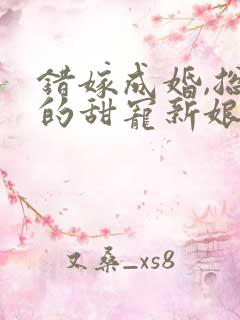 错嫁成婚,总
的甜宠新娘
又桑_xs8